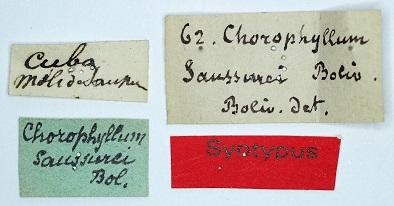 Cuba
62. Chorophyllum
Saussurei Boliv.
Boliv. Det.
Chorophyllum
Saussurei
Bol.
Syntypus